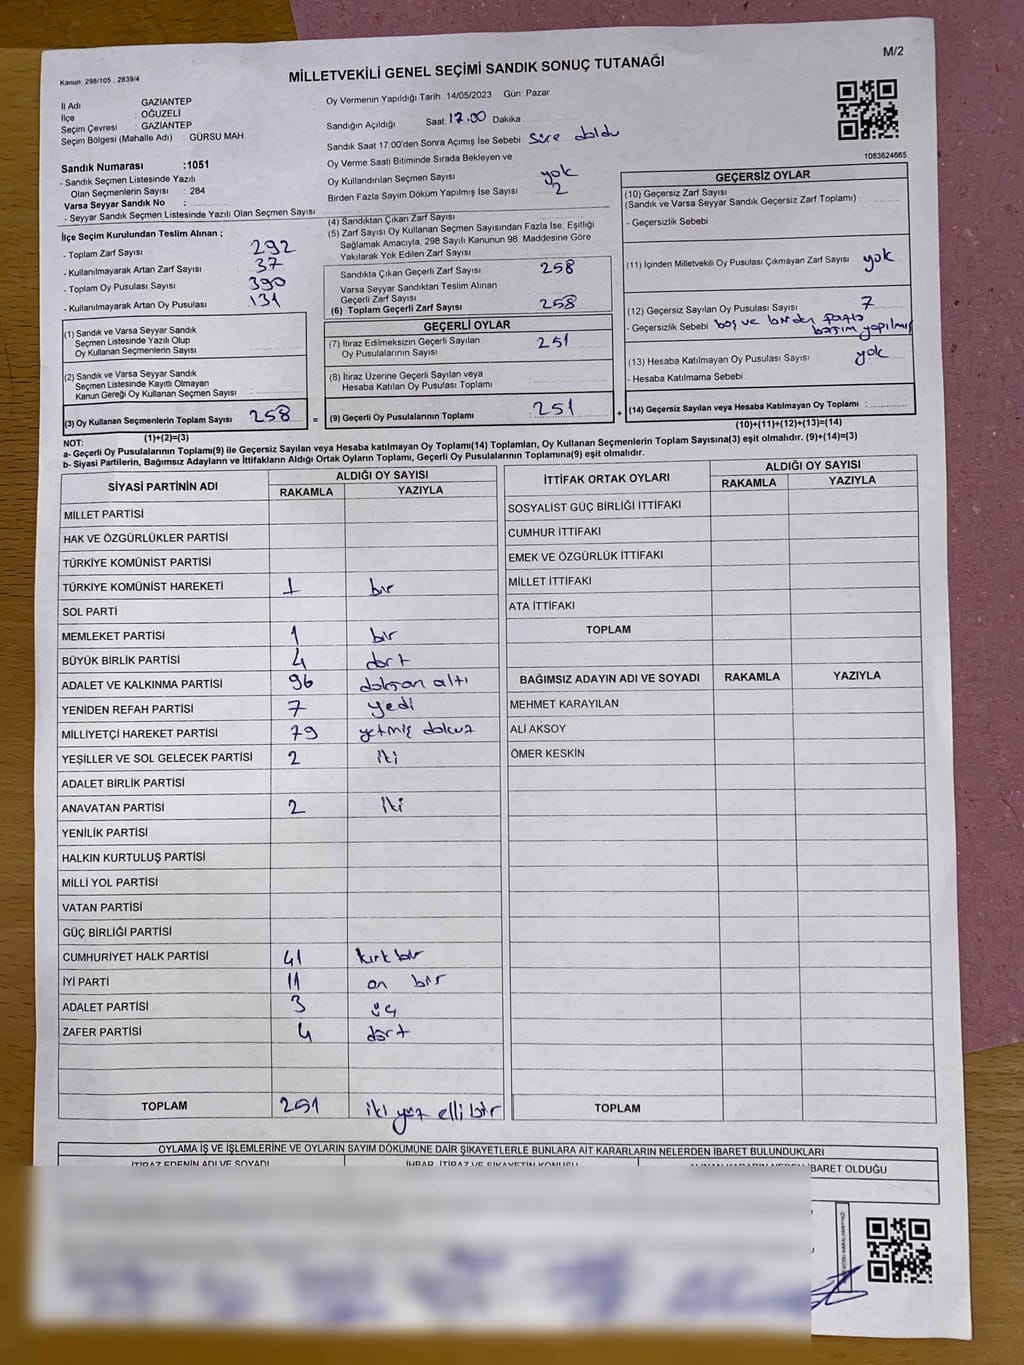 M/2
Kanun: 298/105 , 2839/4
MİLLETVEKİLİ GENEL SEÇİMİ SANDIK SONUÇ TUTANAĞI
İl Adı : GAZİANTEP
İlçe : OĞUZELİ
Seçim Çevresi : GAZİANTEP
Seçim Bölgesi (Mahalle Adı) : GÜRSU MAH
Sandık Numarası :1051
- Sandık Seçmen Listesinde Yazılı
Olan Seçmenlerin Sayısı : 284
Varsa Seyyar Sandık No :
- Seyyar Sandık Seçmen Listesinde Yazılı Olan Seçmen Sayısı:
İlçe Seçim Kurulundan Teslim Alınan ;
- Toplam Zarf Sayısı 292
- Kullanılmayarak Artan Zarf Sayısı 37
- Toplam Oy Pusulası Sayısı 390
- Kullanılmayarak Artan Oy Pusulası 131
(1) Sandık ve Varsa Seyyar Sandık
Seçmen Listesinde Yazılı Olup
Oy Kullanan Seçmenlerin Sayısı
(2) Sandık ve Varsa Seyyar Sandık
Seçmen Listesinde Kayıtlı Olmayan
Kanun Gereği Oy Kullanan Seçmen Sayısı
(3) Oy Kullanan Seçmenlerin Toplam Sayısı 258
(1)+(2)=(3)
Oy Vermenin Yapıldığı Tarih : 14/05/2023 Gün: Pazar
Sandığın Açıldığı Saat: 17.00 Dakika
Sandık Saat 17:00'den Sonra Açımış İse Sebebi Süre doldu
Oy Verme Saati Bitiminde Sırada Bekleyen ve
Oy Kullandırılan Seçmen Sayısı yok
Birden Fazla Sayım Döküm Yapılmış İse Sayısı 2
(4) Sandıktan Çıkan Zarf Sayısı
(5) Zarf Sayısı Oy Kullanan Seçmen Sayısından Fazla İse, Eşitliği
Sağlamak Amacıyla, 298 Sayılı Kanunun 98. Maddesine Göre
Yakılarak Yok Edilen Zarf Sayısı
Sandıkta Çıkan Geçerli Zarf Sayısı 258
Varsa Seyyar Sandıktan Teslim Alınan
Geçerli Zarf Sayısı
(6) Toplam Geçerli Zarf Sayısı 258
GEÇERLİ OYLAR
(7) İtiraz Edilmeksizin Geçerli Sayılan
Oy Pusulalarının Sayısı 251
(8) İtiraz Üzerine Geçerli Sayılan veya
Hesaba Katılan Oy Pusulası Toplamı
= (9) Geçerli Oy Pusulalarının Toplamı 251 +
GEÇERSİZ OYLAR
(10) Geçersiz Zarf Sayısı
(Sandık ve Varsa Seyyar Sandık Geçersiz Zarf Toplamı) :
- Geçersizlik Sebebi :
1083624665
(11) İçinden Milletvekili Oy Pusulası Çıkmayan Zarf Sayısı yok
(12) Geçersiz Sayılan Oy Pusulası Sayısı 7
- Geçersizlik Sebebi boş ve birden fazla
basım yapılmış
(13) Hesaba Katılmayan Oy Pusulası Sayısı yok
- Hesaba Katılmama Sebebi :
(14) Geçersiz Sayılan veya Hesaba Katılmayan Oy Toplamı :
(10)+(11)+(12)+(13)=(14)
NOT:
a- Geçerli Oy Pusulalarının Toplamı(9) ile Geçersiz Sayılan veya Hesaba katılmayan Oy Toplamı(14) Toplamları, Oy Kullanan Seçmenlerin Toplam Sayısına(3) eşit olmalıdır. (9)+(14)=(3)
b- Siyasi Partilerin, Bağımsız Adayların ve İttifakların Aldığı Ortak Oyların Toplamı, Geçerli Oy Pusulalarının Toplamına(9) eşit olmalıdır.
SİYASİ PARTİNİN ADI ALDIĞI OY SAYISI
RAKAMLA YAZIYLA
MİLLET PARTİSİ
HAK VE ÖZGÜRLÜKLER PARTİSİ
TÜRKİYE KOMÜNİST PARTİSİ
TÜRKİYE KOMÜNİST HAREKETİ 1 bir
SOL PARTİ
MEMLEKET PARTİSİ 1 bir
BÜYÜK BİRLİK PARTİSİ 4 dört
ADALET VE KALKINMA PARTİSİ 96 doksan altı
YENİDEN REFAH PARTİSİ 7 yedi
MİLLİYETÇİ HAREKET PARTİSİ 79 yetmiş dokuz
YEŞİLLER VE SOL GELECEK PARTİSİ 2 iki
ADALET BİRLİK PARTİSİ
ANAVATAN PARTİSİ 2 iki
YENİLİK PARTİSİ
HALKIN KURTULUŞ PARTİSİ
MİLLİ YOL PARTİSİ
VATAN PARTİSİ
GÜÇ BİRLİĞİ PARTİSİ
CUMHURİYET HALK PARTİSİ 41 kırk bir
İYİ PARTİ 11 on bir
ADALET PARTİSİ 3 üç
ZAFER PARTİSİ 4 dört
TOPLAM 251 iki yüz elli bir
İTTİFAK ORTAK OYLARI ALDIĞI OY SAYISI
RAKAMLA YAZIYLA
SOSYALİST GÜÇ BİRLİĞİ İTTİFAKI
CUMHUR İTTİFAKI
EMEK VE ÖZGÜRLÜK İTTİFAKI
MİLLET İTTİFAKI
ATA İTTİFAKI
TOPLAM
BAĞIMSIZ ADAYIN ADI VE SOYADI RAKAMLA YAZIYLA
MEHMET KARAYILAN
ALİ AKSOY
ÖMER KESKİN
TOPLAM
OYLAMA İŞ VE İŞLEMLERİNE VE OYLARIN SAYIM DÖKÜMÜNE DAİR ŞİKAYETLERLE BUNLARA AİT KARARLARIN NELERDEN İBARET BULUNDUKLARI
İTİRAZ EDENİN ADI VE SOYADI İHBAR, İTİRAZ VE ŞİKAYETİN KONUSU İBARET OLDUĞU